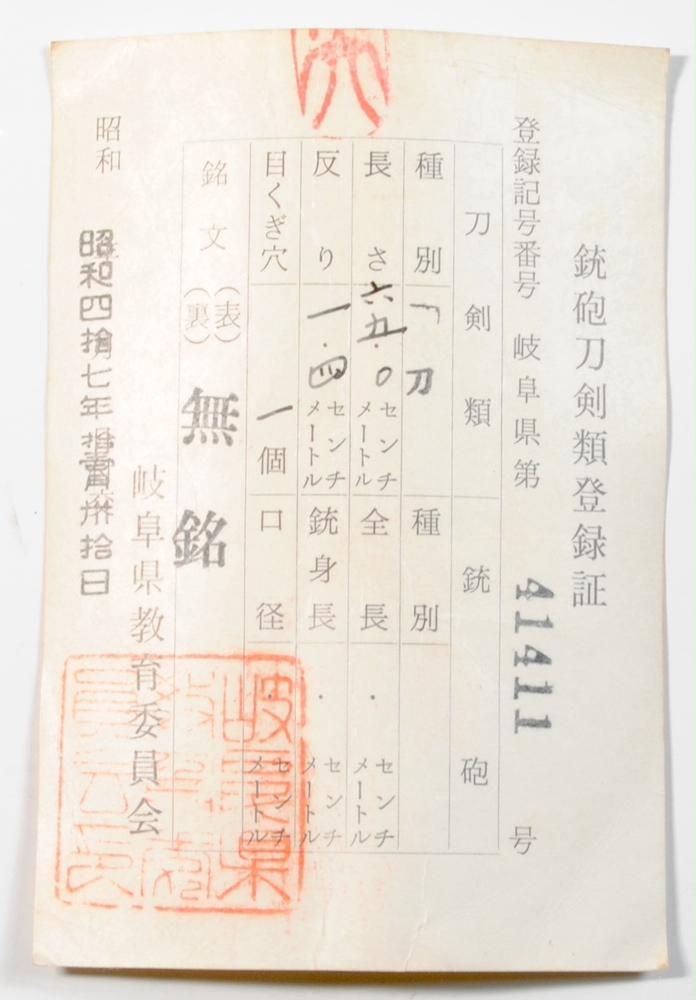 銃砲刀剣類登録証
登録記号番号 岐阜県第 41411 号
刀剣類 銃砲
種別 刀 種別
長さ 六五.〇 センチメートル 全長 ・ センチメートル
反り 一.四 センチメートル 銃身長 ・ センチメートル
目くぎ穴 一個 口径 ・ センチメートル
銘文 (表) (裏) 無銘
岐阜県教育委員会
昭和 昭和四拾七年